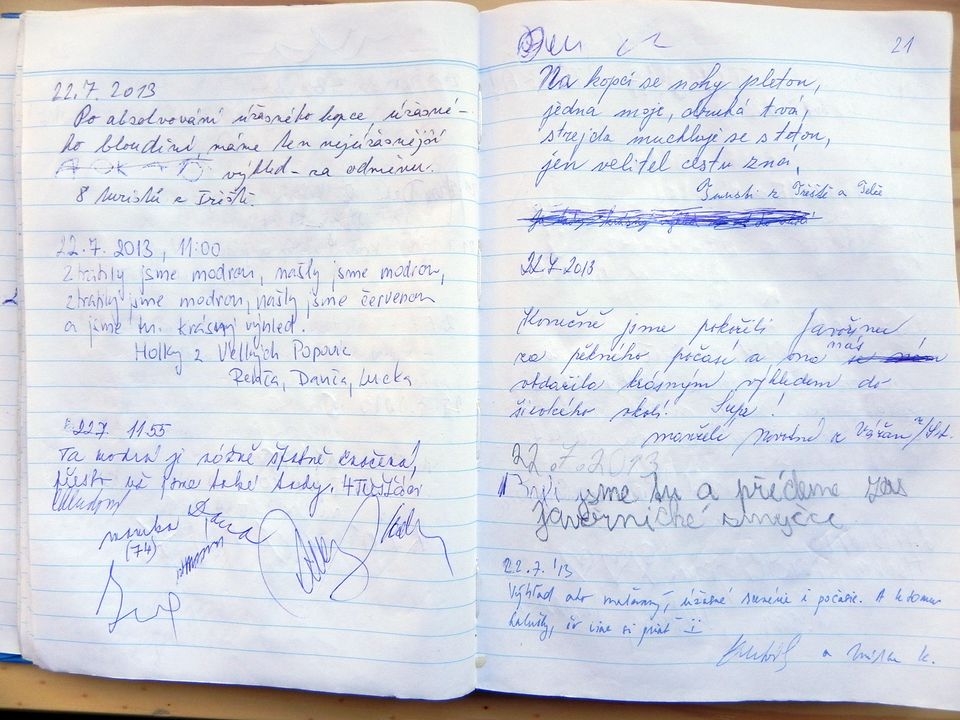 22.7. 2013
Po absolvování úžasného kopce, úžasné-
ho bloudění, máme ten nejúžasnější
výhled - za odměnu.
8 turistů z Třeště.
22.7. 2013, 11:00
Ztratily jsme modrou, našly jsme modrou,
ztratily jsme modrou, našly jsme červenou
a jsme tu. Krásný výhled.
Holky z Velkých Popovic
Renča, Danča, Lucka
22.7. 11.55
Ta modrá je vážně špatně značená,
přesto už jsme také tady.
(74)
21
Na kopci se nohy pletou,
jedna moje, druhá tvá,
strejda muchluje se s tetou,
jen velitel cestu zná,
Turisti z Třeště a Telče
22.7.2013
Konečně jsme pokořili Javořinu
za pěkného počasí a ona nás
obdařila krásným výhledem do
širokého okolí. Super!
manželé
22.7.2013
Byli jsme tu a přédeme zas
22.7.'13
Výhľad ako maľovaný, úžasné scenérie i počasie. A k tomu
halušky, čo viac si priať
a